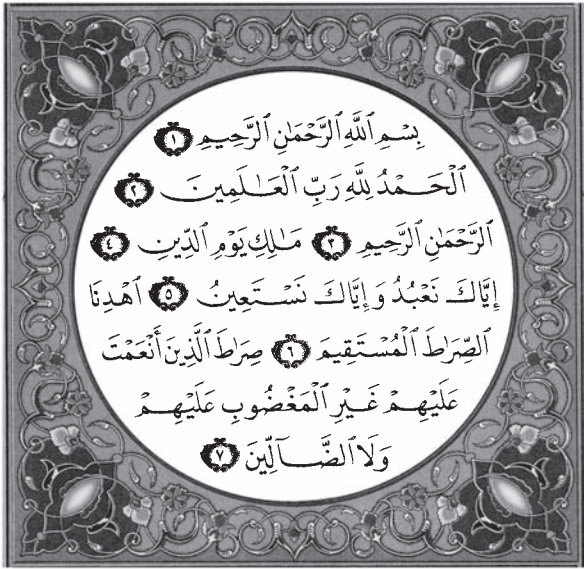 بِسْمِ ٱللَّهِ ٱلرَّحْمَـٰنِ ٱلرَّحِيمِ ١
ٱلْحَمْدُ لِلَّهِ رَبِّ ٱلْعَـٰلَمِينَ ٢
ٱلرَّحْمَـٰنِ ٱلرَّحِيمِ ٣ مَـٰلِكِ يَوْمِ ٱلدِّينِ ٤
إِيَّاكَ نَعْبُدُ وَ إِيَّاكَ نَسْتَعِينُ ٥ ٱهْدِنَا
ٱلصِّرَاطَ ٱلْمُسْتَقِيمَ ٦ صِرَاطَ ٱلَّذِينَ أَنْعَمْتَ
عَلَيْهِمْ غَيْرِ ٱلْمَغْضُوبِ عَلَيْهِمْ
وَلَا ٱلضَّآلِّينَ ٧